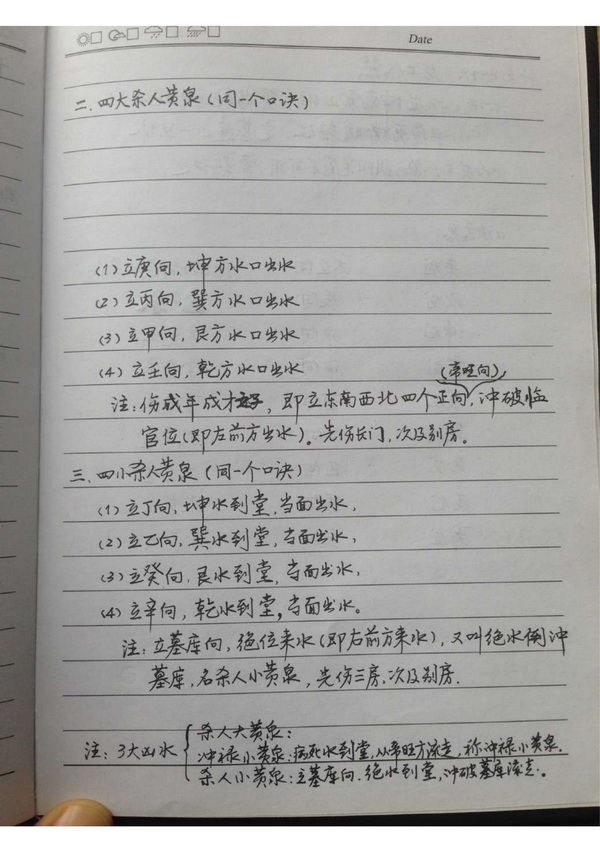 Date
二.四大杀人黄泉(同一个口诀)
(1)立庚向,坤方水口出水
(2)立丙向,巽方水口出水
(3)立甲向,艮方水口出水
(4)立壬向,乾方水口出水
(帝旺向)
注:伤成年成才子,即立东南西北四个正向,冲破临
官位(即左前方出水)。先伤长门,次及别房。
三.四小杀人黄泉(同一个口诀)
(1)立丁向,坤水到堂,当面出水,
(2)立乙向,巽水到堂,当面出水,
(3)立癸向,艮水到堂,当面出水,
(4)立辛向,乾水到堂,当面出水。
注:立墓库向,绝位来水(即右前方来水),又叫绝水倒冲
墓库,名杀人小黄泉,先伤三房,次及别房.
杀人大黄泉:
注:3大凶水
冲禄小黄泉:病死水到堂,从帝旺方流走,称冲禄小黄泉.
杀人小黄泉:立墓库向.绝水到堂,冲破墓库流走.。